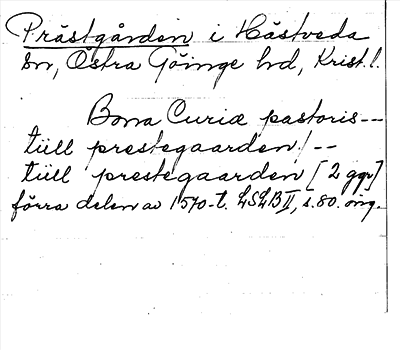 Prästgården i Hästveda
sn, Östra Göinge hd, Krist.l.
Bona Curiæ pastoris--
tiill prestegaarden/--
tiill prestegaarden [2 ggr]
förra delen av 1570-t. LSLB II, s. 80. öng.